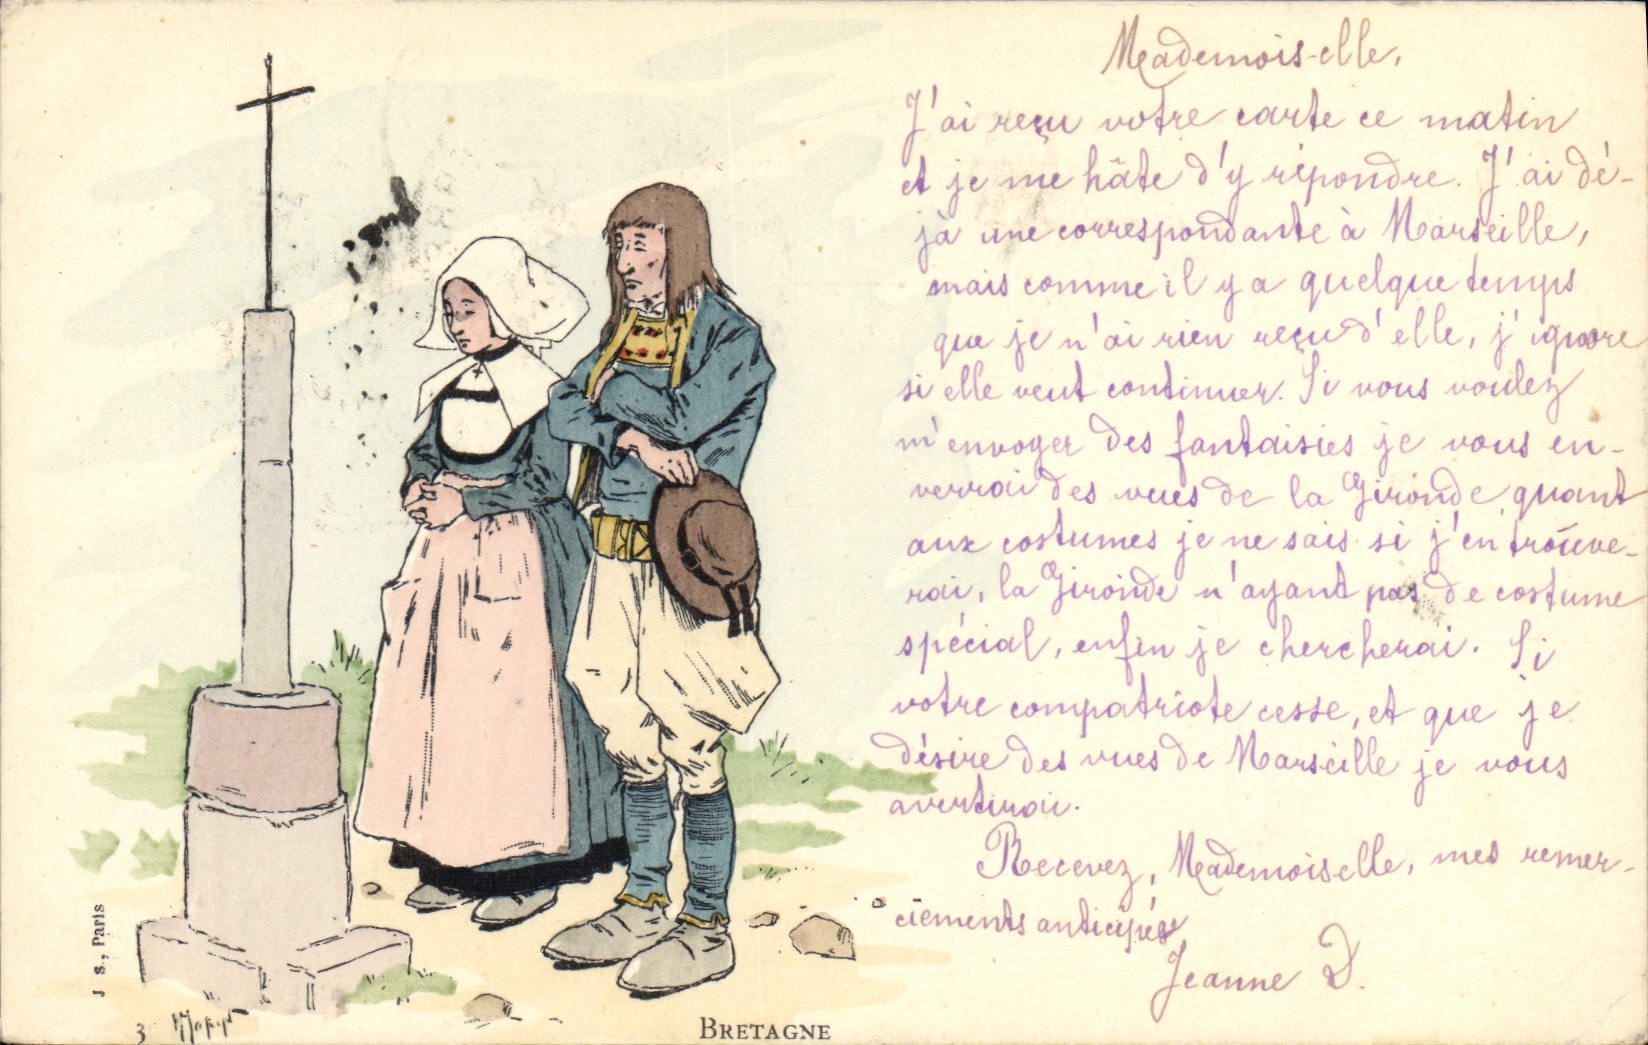 Mademoiselle,
J'ai reçu votre carte ce matin
et je me hâte d'y répondre. J'ai dé-
jà une correspondante à Marseille,
mais comme il y a quelque temps
que je n'ai rien reçu d'elle, j'ignore
si elle veut continuer. Si vous voulez
m'envoyer des fantaisies je vous en-
verrai des vues de la Gironde, quant
aux costumes je ne sais si j'en trouve-
rai, la Gironde n'ayant pas de costume
spécial, enfin je chercherai. Si
votre compatriote cesse, et que je
désire des vues de Marseille je vous
avertirai.
Recevez, Mademoiselle, mes remer-
ciements anticipés
Jeanne D.
J S., Paris
3
BRETAGNE